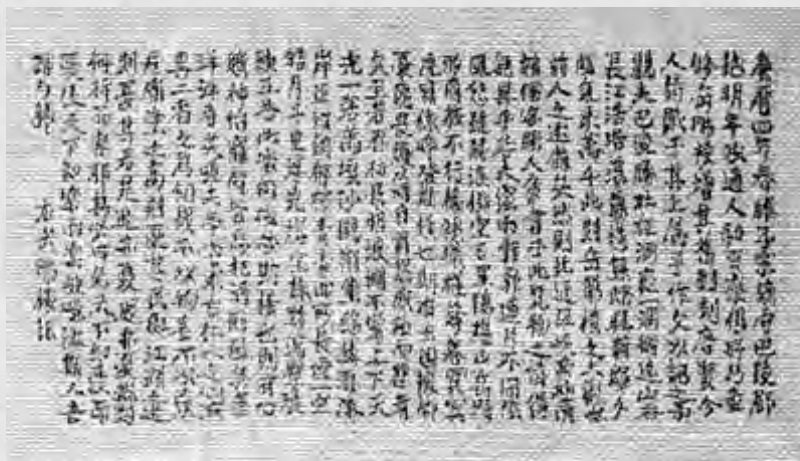 慶曆四年春滕子京謫守巴陵郡
越明年政通人和百廢俱興乃重
修岳陽樓增其舊制刻唐賢今
人詩賦于其上屬予作文以記之予
觀夫巴陵勝狀在洞庭一湖銜遠山吞
長江浩浩湯湯橫無際涯朝暉夕
陰氣象萬千此則岳陽樓之大觀也
前人之述備矣然則北通巫峽南極瀟
湘遷客騷人多會于此覽物之情得
無異乎若夫霪雨霏霏連月不開陰
風怒號濁浪排空日星隱耀山岳潛
形商旅不行檣傾楫摧薄暮冥冥
虎嘯猿啼登斯樓也則有去國懷鄉
憂讒畏譏滿目蕭然感極而悲者
矣至若春和景明波瀾不驚上下天
光一碧萬頃沙鷗翔集錦鱗游泳
岸芷汀蘭郁郁青青而或長煙一空
皓月千里浮光躍金靜影沉璧漁
歌互答此樂何極登斯樓也則有心
曠神怡寵辱皆忘把酒臨風其喜
洋洋者矣嗟夫予嘗求古仁人之心或
異二者之為何哉不以物喜不以己悲
居廟堂之高則憂其民處江湖之遠
則憂其君是進亦憂退亦憂然則
何時而樂耶其必曰先天下之憂而
憂後天下之樂而樂歟噫微斯人吾
誰與歸 右岳陽樓記